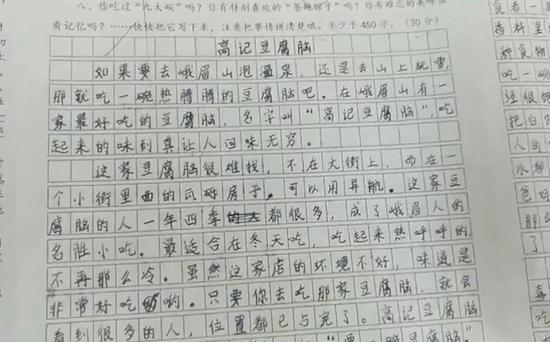 八、你吃过"九大碗"吗？你有特别喜欢的"苍蝇馆子"吗？你有难忘的美味
有记忆吗？……快快把它写下来，注意把事情讲清楚哦。不少于450字。（30分）
高记豆腐脑
如果要去峨眉山泡温泉，还是去山上玩雪，
那就吃一碗热腾腾的豆腐脑吧。在峨眉山有一
家最好吃的豆腐脑，名字叫"高记豆腐脑"，吃
起来的味到真让人回味无穷。
这家豆腐脑很难找，不在大街上，而在一
个小街里面的瓦砖房子。可以用导航。这家豆
腐脑的人一年四季都很多，成了峨眉人的
名胜小吃。最适合在冬天吃，吃起来热呼呼的，
不再那么冷。虽然这家店的环境不好，味道是
非常好吃哟。只要你去吃那家豆腐脑，就会
看到很多的人，位置都已占完了。高记豆腐脑
食者一
香料里
种食物
吃一碗
经很饱
把白
人
冰
色
那